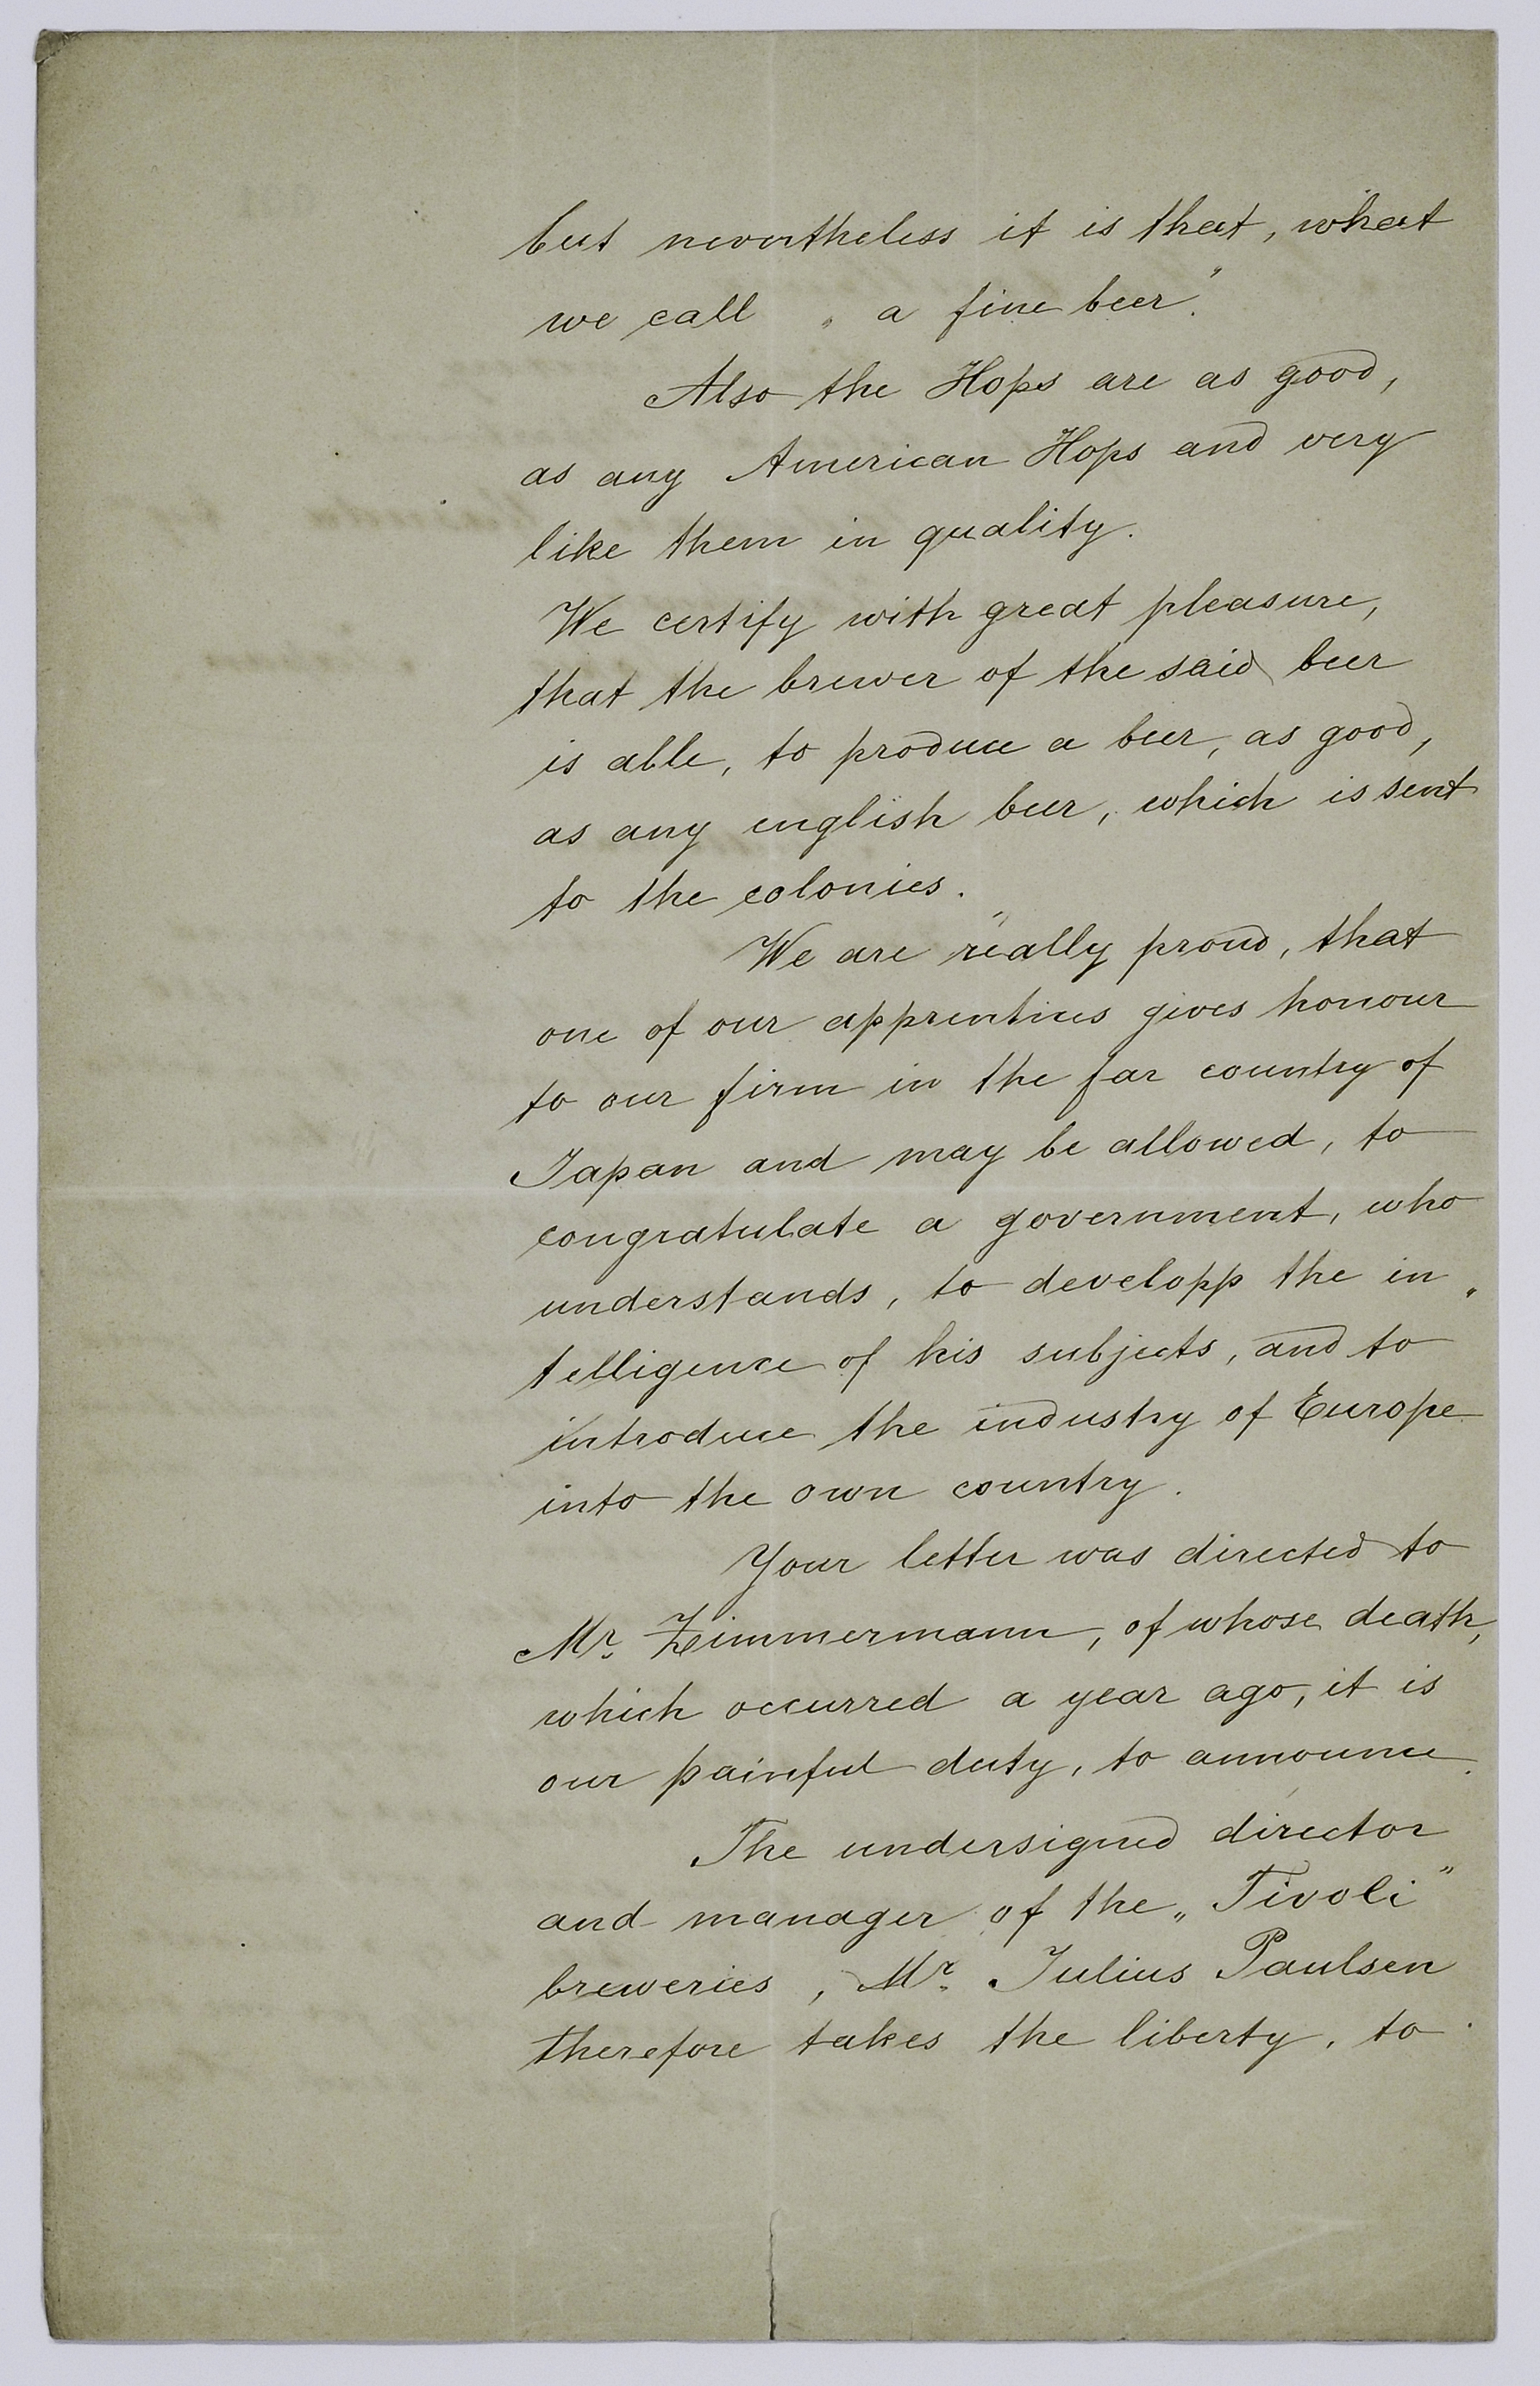 but nevertheless it is that, what
we call „ a fine beer".
Also the Hops are as good,
as any American Hops and very
like them in quality.
We certify with great pleasure,
that the brewer of the said beer
is able, to produce a beer, as good,
as any english beer, which is sent
to the colonies.
We are really proud, that
one of our apprentices gives honour
to our firm in the far country of
Japan and may be allowed, to
congratulate a government, who
understands, to developp the in„
telligence of his subjects, and to
introduce the industry of Europe
into the own country.
Your letter was directed to
Mr. Zimmermann, of whose death,
which occurred a year ago, it is
our painful duty, to announce.
The undersigned director
and manager of the „Tivoli"
breweries, Mr. Julius Paulsen
therefore takes the liberty, to